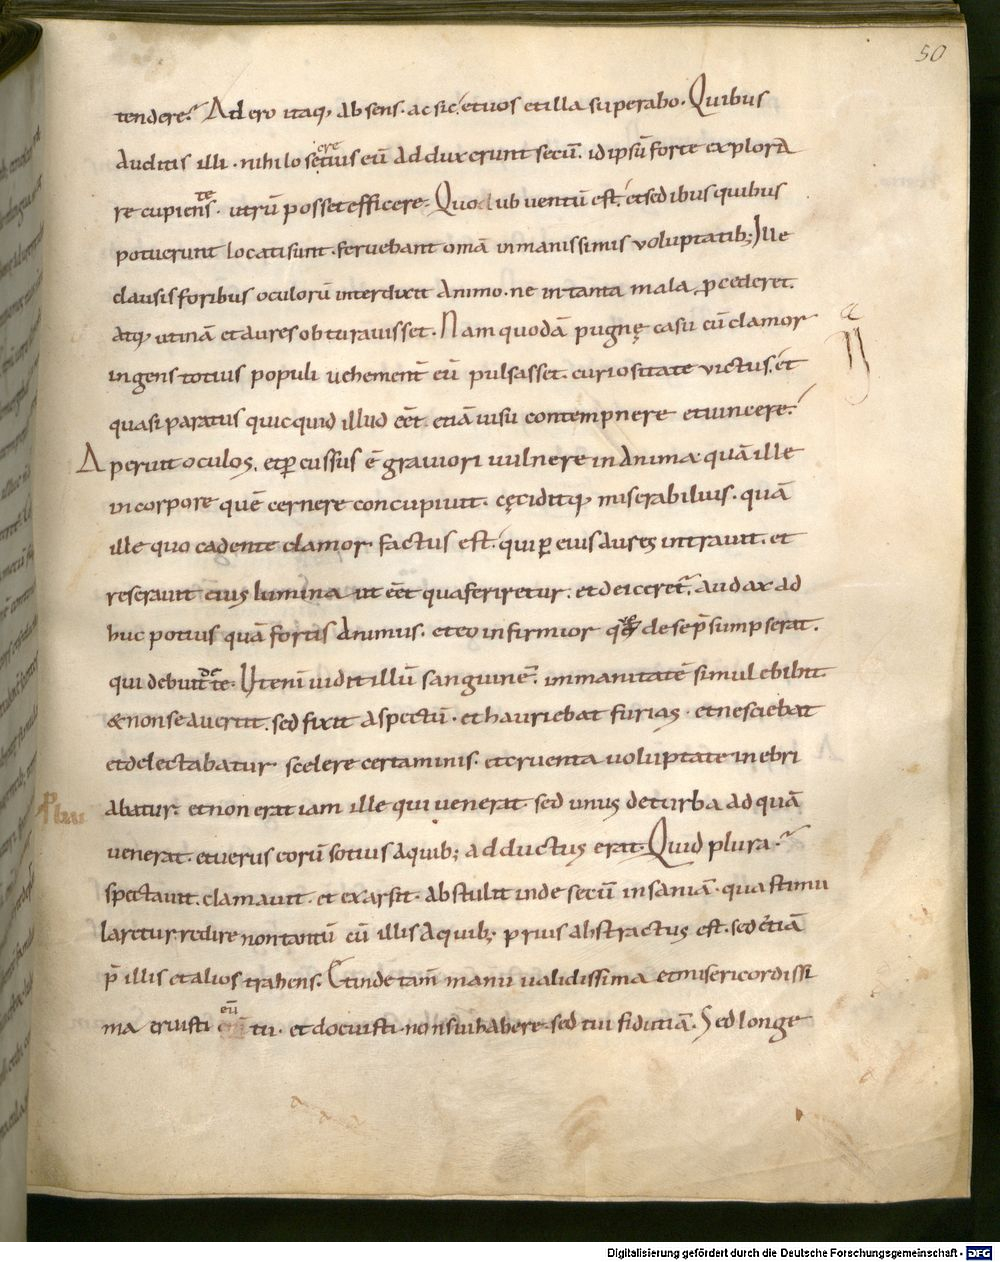 50
tendere? Adero itaq; absens. ac sic. et uos et illa superabo. Quibus
auditis illi. nihilo secius eū adduxerunt secū. id ipsū forte explora
re cupientes. utrū posset efficere. Quo ubi uentū est. et sedibus quibus
potuerunt locati sunt. feruebant omā inmanissimis voluptatib; Ille
clausis foribus oculorū interdixit animo. ne in tanta mala ꝓcederet.
atq; utinā et aures obturauisset. Nam quodā pugnę casu cū clamor
ingens totius populi uehement̄ eū pulsasset. curiositate victus. et
quasi paratus quicquid illud eēt. etiā uisu contempnere et uincere.
Aperuit oculos. et ꝑcussus ē grauiori uulnere in anima quā ille
in corpore quē cernere concupiuit. cęciditq; miserabilius. quā
ille quo cadente clamor factus est. qui ꝑ eius aures intrauit. et
reserauit eius lumina ut eēt qua feriretur. et deiceret᷑. audax ad
huc potius quā fortis animus. et eo infirmior de se p̄sumpserat.
qui debuit de te. Ut enī uidit illū sanguinē. inmanitatē simul ebibit.
& non se auertit. sed fixit aspectū. et hauriebat furias. et nesciebat
et delectabatur scelere certaminis. et cruenta uoluptate inebri
abatur. et non erat iam ille qui uenerat. sed unus de turba ad quā
uenerat. et uerus eorū sotius a quib; adductus erat. Quid plura.
spectauit. clamauit. et exarsit. abstulit inde secū insaniā. qua stimu
laretur. redire non tantū cū illis a quib; prius abstractus est. sed etiā
p̄ illis et alios trahens. Et inde tam̄ manu ualidissima et misericordissi
ma eruisti eū tu. et docuisti non sui habere. sed tui fidutiā. Sed longe
Digitalisierung gefördert durch die Deutsche Forschungsgemeinschaft - DFG